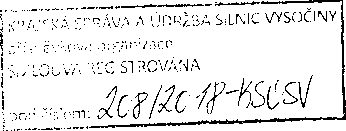 KRAJSKÁ SPRÁVA A ÚDRŽBA SILNIC VYSOČINY
příspěvková organizace
SMLOUVA REGISTROVÁNA
pod číslem: 208/2018-KSÚSV